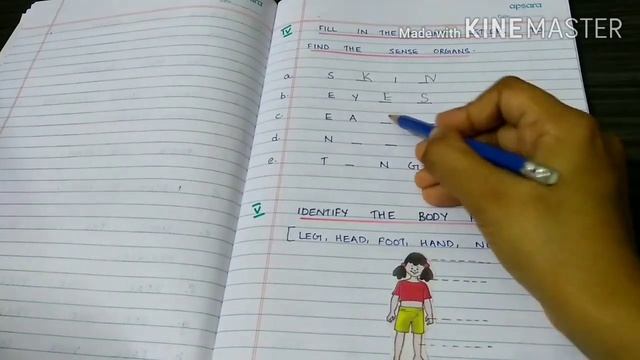 apsara
apsara
Made with KINEMASTER
IV FILL IN THE
FIND THE SENSE ORGANS.
a. S K I N
b. E Y E S
c. E A _
d. N _ _
e. T _ N G
V IDENTIFY THE BODY
[LEG, HEAD, FOOT, HAND,